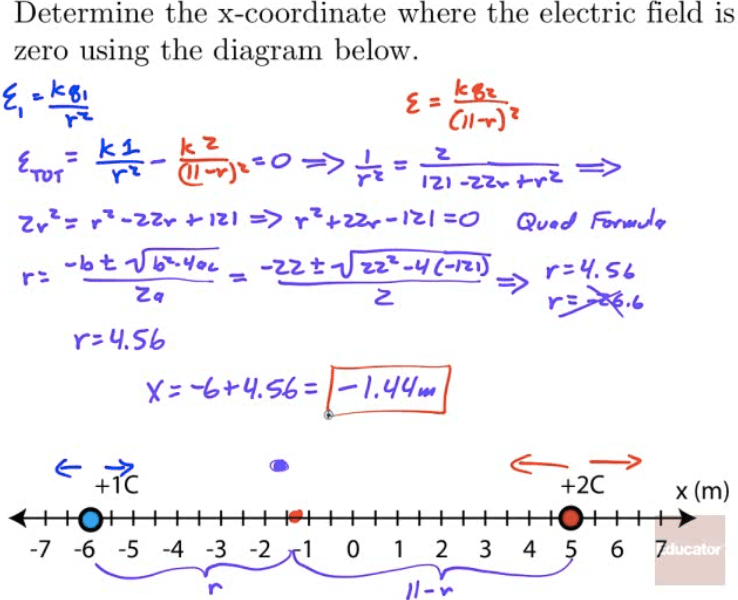 Determine the x-coordinate where the electric field is
zero using the diagram below.
ℰ₁ = kq₁/r² ℰ = kq₂/(11-r)²
ℰTOT = k1/r² - k2/(11-r)² = 0 => 1/r² = 2/(121-22r+r²) =>
2r² = r² -22r + 121 => r² + 22r - 121 = 0 Quad Formula
r = (-b ± √(b²-4ac))/2a = (-22 ± √(22² -4(-121)))/2 => r = 4.56
r = -26.6
r = 4.56
x = -6 + 4.56 = -1.44m
+1C +2C
x (m)
-7 -6 -5 -4 -3 -2 -1 0 1 2 3 4 5 6 7
Educator
r 11-r